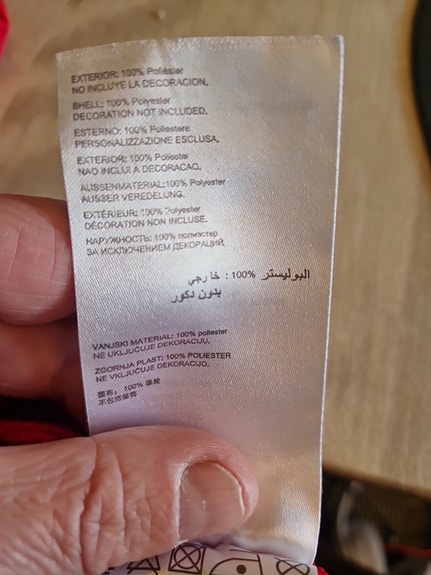 EXTERIOR: 100% Poliéster
NO INCLUYE LA DECORACION.
SHELL: 100% Polyester
DECORATION NOT INCLUDED.
ESTERNO: 100% Poliestere
PERSONALIZZAZIONE ESCLUSA.
EXTERIOR: 100% Poliester
NAO INCLUI A DECORACAO.
AUSSENMATERIAL:100% Polyester
AUSSER VEREDELUNG.
EXTÉRIEUR: 100% Polyester
DÉCORATION NON INCLUSE.
НАРУЖНОСТЬ: 100% полиэстер
ЗА ИСКЛЮЧЕНИЕМ ДЕКОРАЦИЙ.
البوليستر 100% : خارجي
بدون دكور
VANJSKI MATERIAL: 100% poliester
NE UKLJUČUJE DEKORACIJU.
ZGORNJA PLAST: 100% POLIESTER
NE VKLJUČUJE DEKORACIJO.
面布: 100% 涤纶
不包括装饰